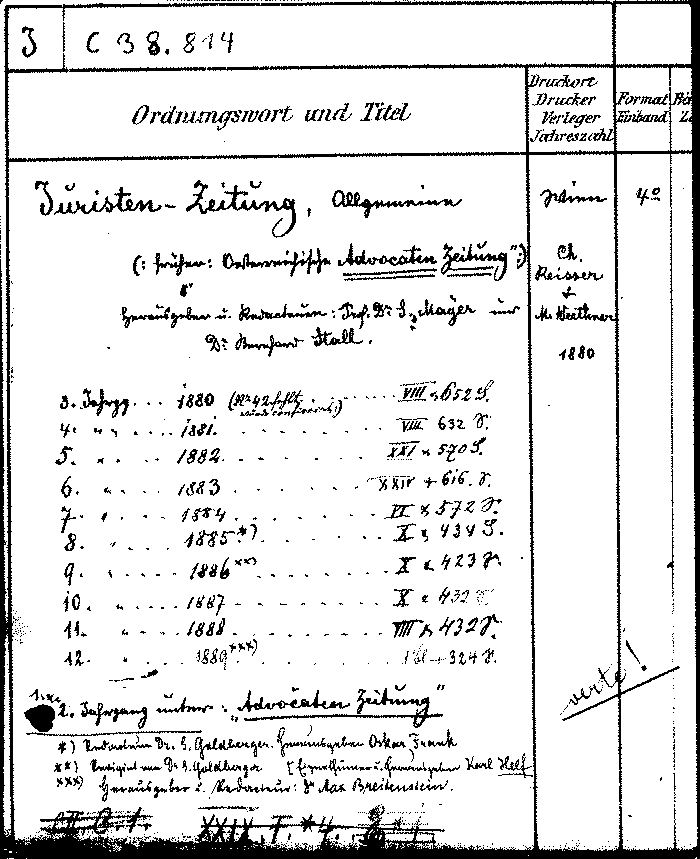 J C 38.814
Ordnungswort und Titel
Druckort
Drucker
Verleger
Jahreszahl
Format
Einband
Juristen-Zeitung, Allgemeine
Wien
4º
(: früher: Oesterreichische Advocaten Zeitung":)
Ch.
Reisser
&
Herausgeber u. Redacteure: Prof. Dr. S. Mayer und
M. Werthner
Dr. Bernhard Stall.
1880
3. Jahrgg... 1880 (Nr. 42 fehlt VIII & 652 S.
4. " " ... 1881. VIII 632 S.
5. " ... 1882 XXI & 570 S.
6. " ... 1883 XXIV + 616. S.
7. " ... 1884 VI & 572 S.
8. " ... 1885 *) X & 434 S.
9. " ... 1886 **) X & 423 S.
10. " ... 1887 X & 432 S.
11. " 1888 VIII & 432 S.
12. " 1889 ***) 324 S.
verte!
2. Jahrgang unter: "Advocaten Zeitung"
*) Redacteur Dr. S. Goldberger. Herausgeber Oskar Frank
**) Redigirt von Dr. S. Goldberger [Eigenthümer u. Herausgeber Karl Helf
***) Herausgeber u. Redacteur: Dr Max Breitenstein.
XXIX. F. *4.